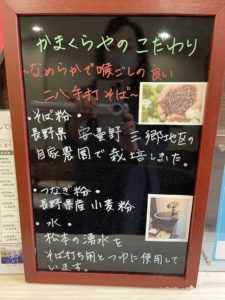 かまくらやのこだわり
~なめらかで喉ごしの良い
二八手打そば~
・そば粉・
長野県 安曇野 三郷地区の
自家農園で栽培しました。
・つなぎ粉・
長野県産小麦粉
・水・
松本の湧水を
そば打ち用とつゆに使用して
います。